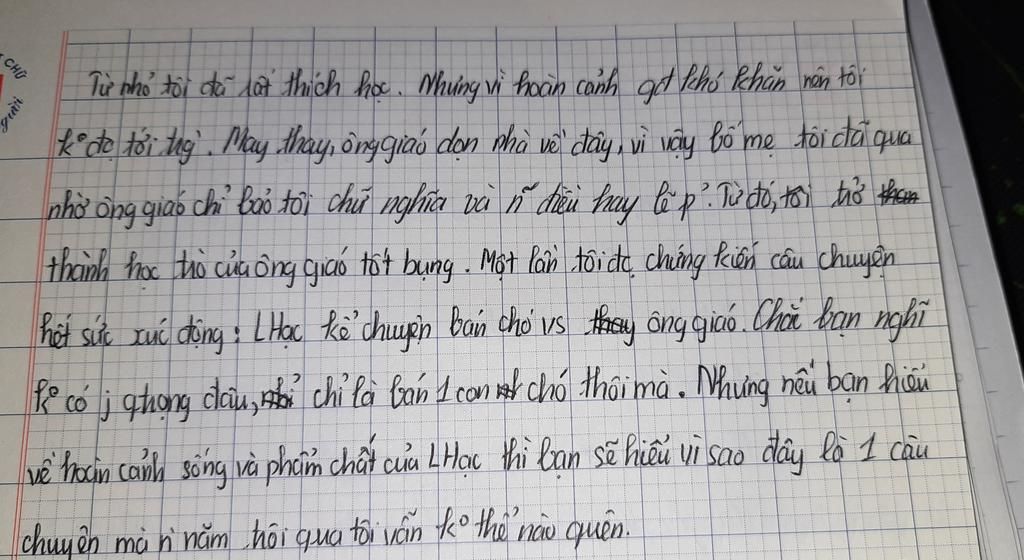 CHỮ
giải
Từ nhỏ tôi đã rất thích học. Nhưng vì hoàn cảnh gđ khó khăn nên tôi
kº đc tới trg`. May thay, ông giáo dọn nhà về đây, vì vậy bố mẹ tôi đã qua
nhờ ông giáo chỉ bảo tôi chữ nghĩa và n~ điều hay lẽ p'. Từ đó, tôi trở
thành học trò của ông giáo tốt bụng. Một lần tôi đc chứng kiến câu chuyện
hết sức xúc động: LHạc kể chuyện bán chó vs ông giáo. Chắc bạn nghĩ
kº có j qtrọng đâu, chỉ là bán 1 con chó thôi mà. Nhưng nếu bạn hiểu
về hoàn cảnh sống và phẩm chất của LHạc thì bạn sẽ hiểu vì sao đây là 1 câu
chuyện mà n` năm trôi qua tôi vẫn kº thể nào quên.